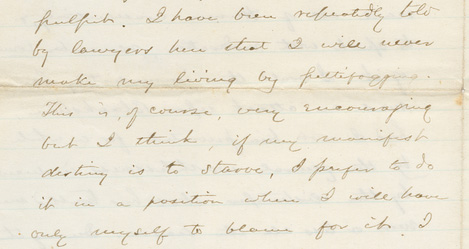 pulpit. I have been repeatedly told
by lawyers here that I will never
make my living by pettifogging.
This is, of course, very encouraging
but I think, if my manifest
destiny is to starve, I prefer to do
it in a position where I will have
only myself to blame for it. I